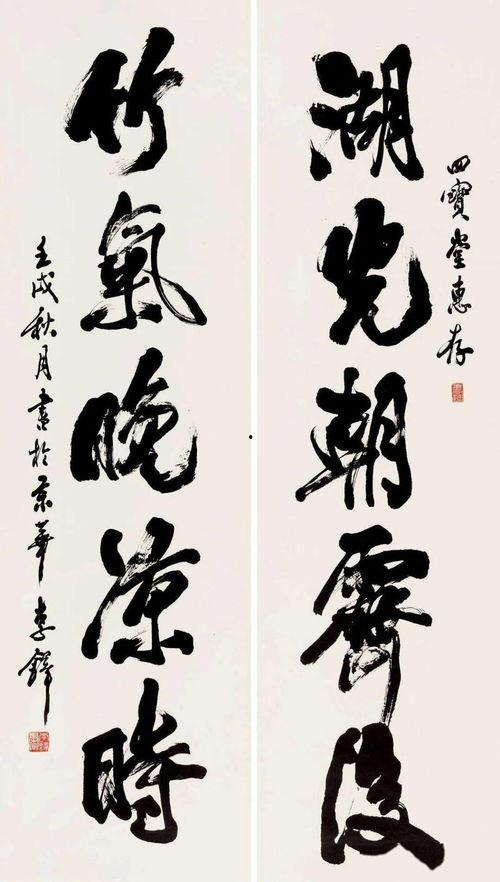 四寶堂惠存
湖光朝霽後
竹氣晚涼時
壬戌秋月書於京華 李鐸